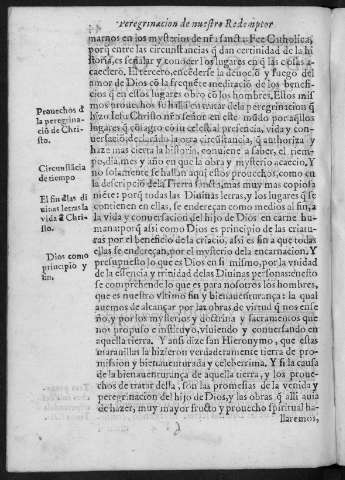 Peregrinacion de nuestro Redemptor
marnos en los mysterios de nr̃a sancta Fee Catholica,
porq̃ entre las circunstancias q̃ dan certinidad de la hi
storia, es señalar y conocer los lugares en q̃ las cosas a-
caescierõ. El tercero, encēderse la deuociõ y fuego del
amor de Dios cõ la frequēte meditaciõ de los benefi-
cios q̃ en estos lugares obro cõ los hombres. Estos mis
mos prouechos se hallã en tratar dela peregrinacion q̃
hizo Iesu Christo nr̃o señor en este mũdo por aq̃llos
Prouechos đ
la peregrina-
ciõ de Chri-
sto.
lugares q̃ cõsagro cõ su celestial presencia, vida y con-
uersaciõ, declarãdo la otra circunstãcia, q̃ authoriza y
haze mas cierta la historia, conuiene a saber, el tiem-
po, dia, mes y año en que la obra y mysterio acaecio. Y
Circunstãcia
de tiempo
no solamente se hallan aqui estos prouechos, como en
la descripciõ dela Tierra sancta, mas muy mas copiosa
El fin đlas di
uinas letras la
vida đ Chri-
sto.
mēte: porq̃ todas las Diuinas letras, y los lugares q̃ se
contienen en ellas, se endereçan como medios al fin, a
la vida y conuersacion del hijo de Dios en carne hu-
mana: porq̃ assi como Dios es principio de las criatu-
ras por el beneficio dela criaciõ, assi es fin a que todas
Dios como
principio y
fin.
ellas se endereçan, por el mysterio dela encarnacion. Y
presupuesto lo que es Dios en si mismo, por la vnidad
de la essencia y trinidad delas Diuinas personas: enesto
se comprehende lo que es para nosotros los hombres,
que es nuestro vltimo fin y bienauenturança: la qual
auemos de alcançar por las obras de virtud q̃ nos ense
ño, y por los mysterios y doctrina y sacramentos que
nos propuso e instituyo, viuiendo y conuersando en
aquella tierra. Y ansi dize san Hieronymo, que estas
marauillas la hizieron verdaderamente tierra de pro-
mission y bienauenturada y celeberrima. Y si la causa
de la bienauenturança de aquella tierra, y los proue-
chos de tratar della, son las promesas de la venida y
peregrinacion del hijo de Dios, y las obras q̃ alli auia
de hazer, muy mayor fructo y prouecho spiritual ha-
llaremos,